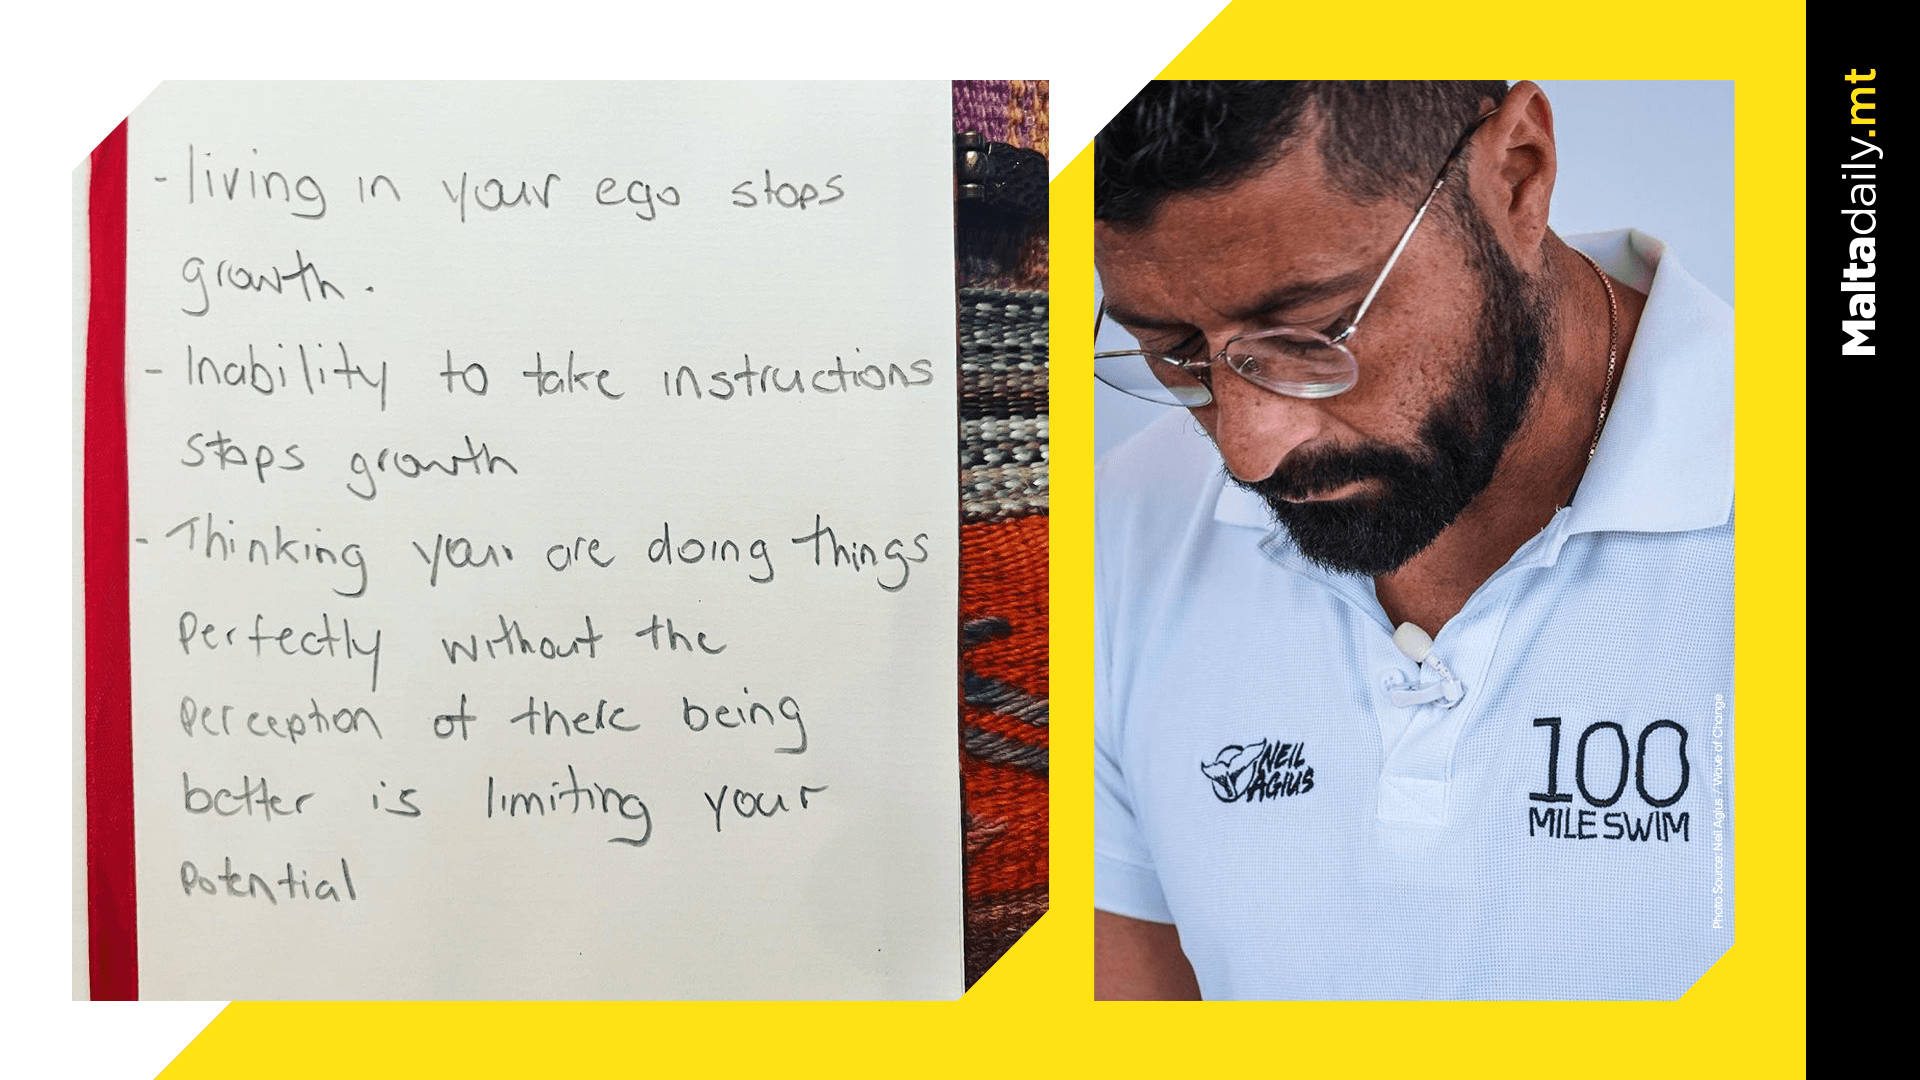 - living in your ego stops
growth.
- Inability to take instructions
stops growth
- Thinking your are doing things
Perfectly without the
perception of there being
better is limiting your
potential
NEIL
AGIUS
100
MILE SWIM
Photo Source: Neil Agius / Wave of Change
Maltadaily.mt